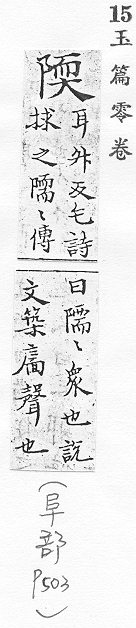 15 玉篇零卷
陾
耳升反毛詩
捄之隭〻傳
曰隭〻衆也説
文築廧聲也
(阜部 P503)